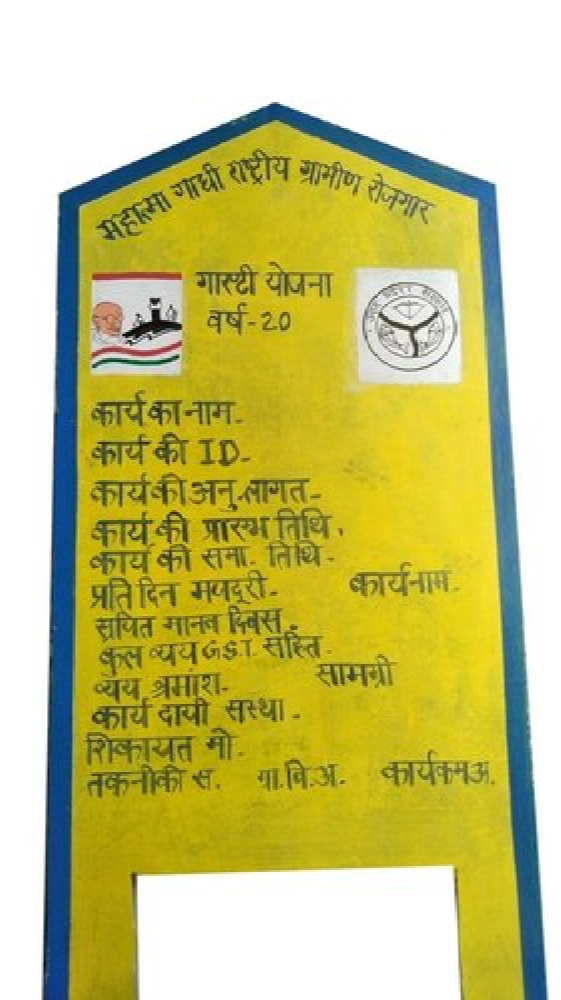 महात्मा गांधी राष्ट्रीय ग्रामीण रोजगार
गारन्टी योजना
वर्ष-20
कार्य का नाम-
कार्य की ID-
कार्य की अनु.लागत-
कार्य की प्रारम्भ तिथि.
कार्य की समा. तिथि-
प्रति दिन मजदूरी- कार्यनाम-
सृजित मानव दिवस-
कुल व्यय G.S.T. सहित-
व्यय श्रमांश- सामग्री
कार्य दायी संस्था-
शिकायत मो-
तकनीकी स. ग्रा.वि.अ. कार्यकमअ.